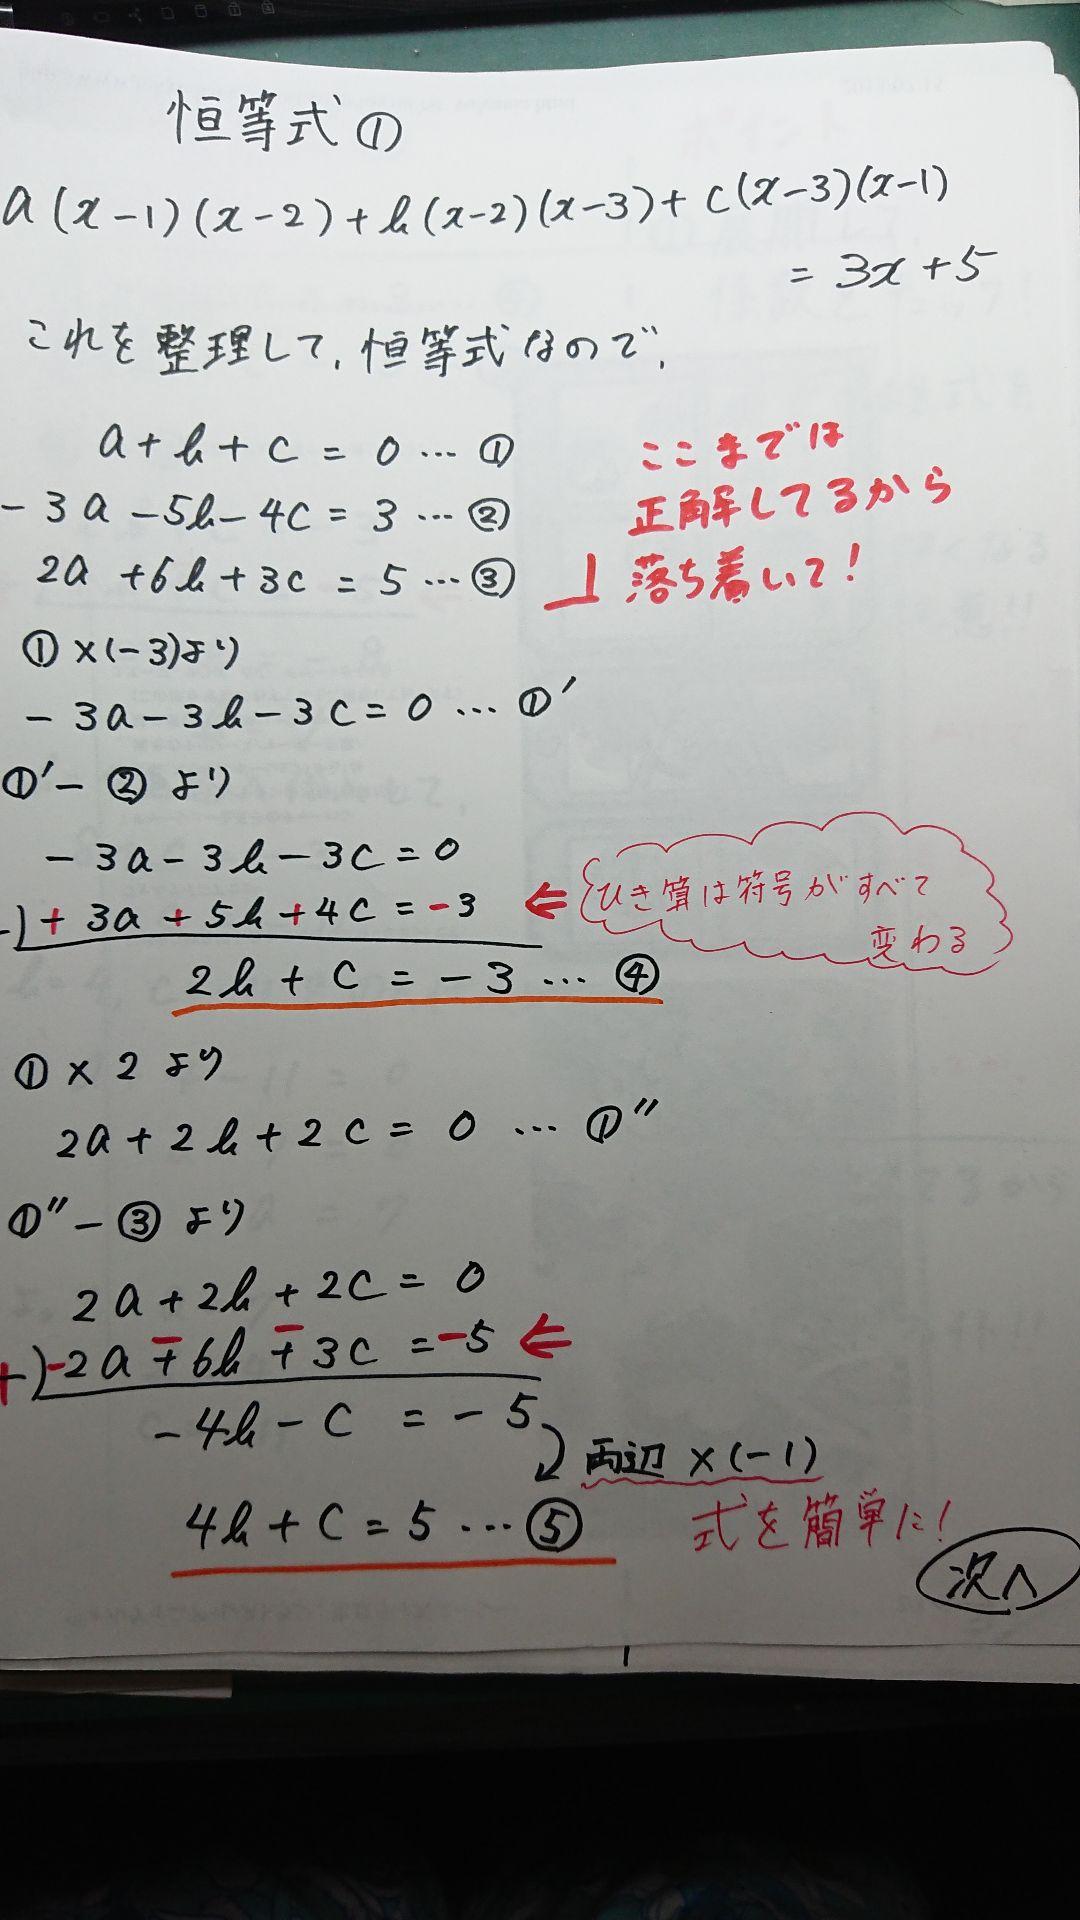 恒等式①
a(x-1)(x-2)+b(x-2)(x-3)+c(x-3)(x-1)
=3x+5
これを整理して、恒等式なので、
a+b+c=0…①
-3a-5b-4c=3…②
2a+6b+3c=5…③
ここまでは
正解してるから
落ち着いて!
①×(-3)より
-3a-3b-3c=0…①'
①'-②より
-3a-3b-3c=0
-)+3a+5b+4c=-3
⇐ひき算は符号がすべて
変わる
2b+c=-3…④
①×2より
2a+2b+2c=0…①''
①''-③より
2a+2b+2c=0
+)-2a-6b-3c=-5⇐
-4b-c=-5
両辺×(-1)
4b+c=5…⑤
式を簡単に!
次へ